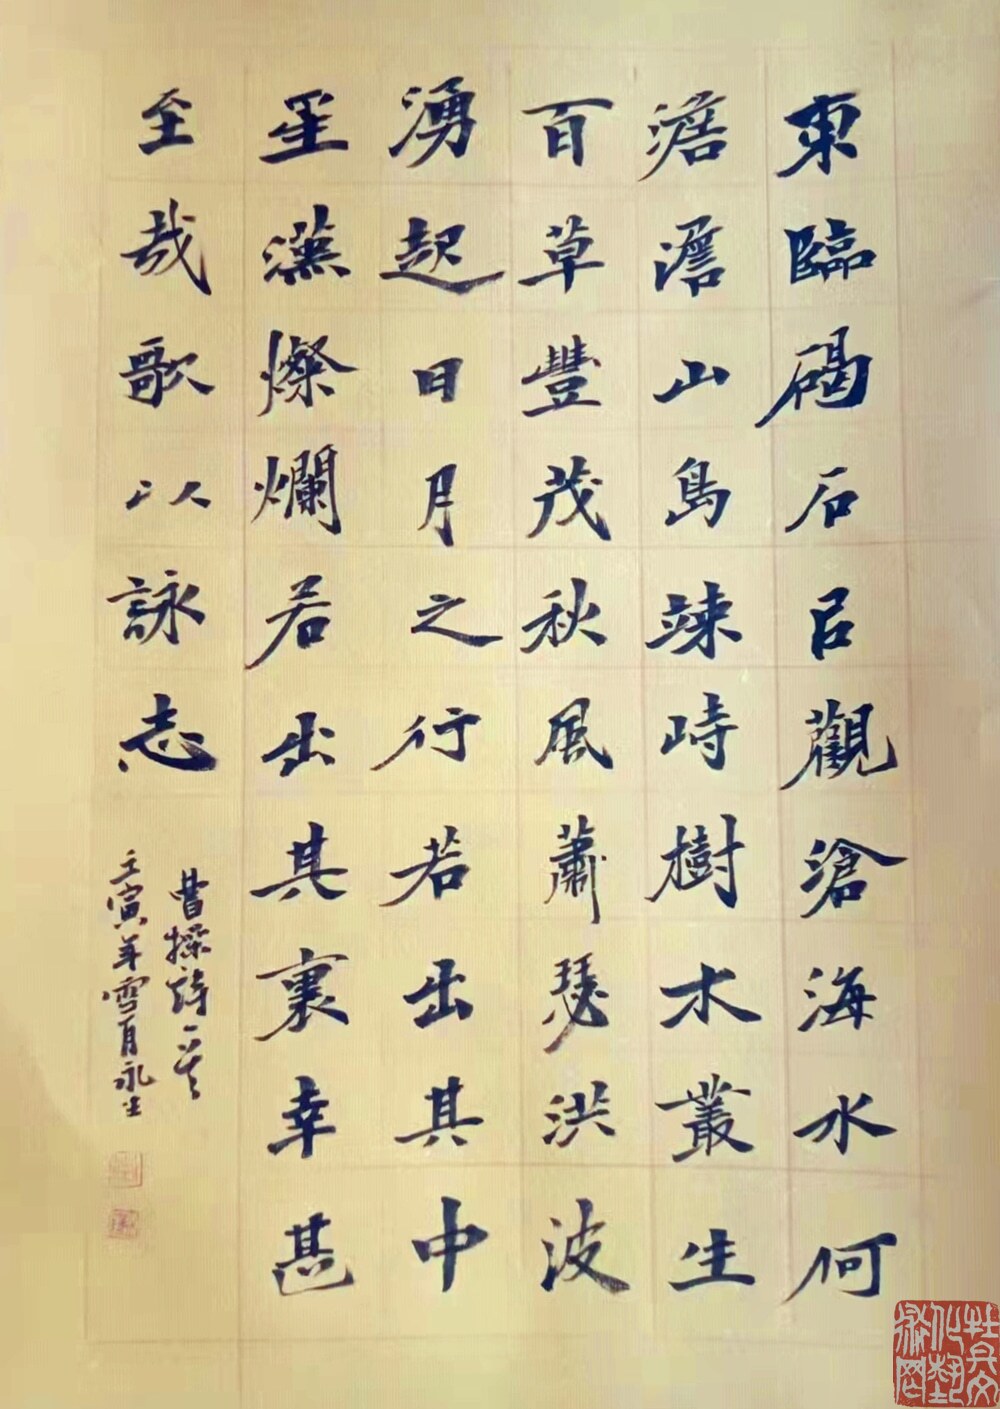 東臨碣石㠯觀滄海水何
澹澹山島竦峙樹木叢生
百草豐茂秋風蕭瑟洪波
湧起日月之行若出其中
星漢燦爛若出其裏幸甚
至哉歌以詠志
曹操詩一首
壬寅年雪月永生
牡丹文化藝術网